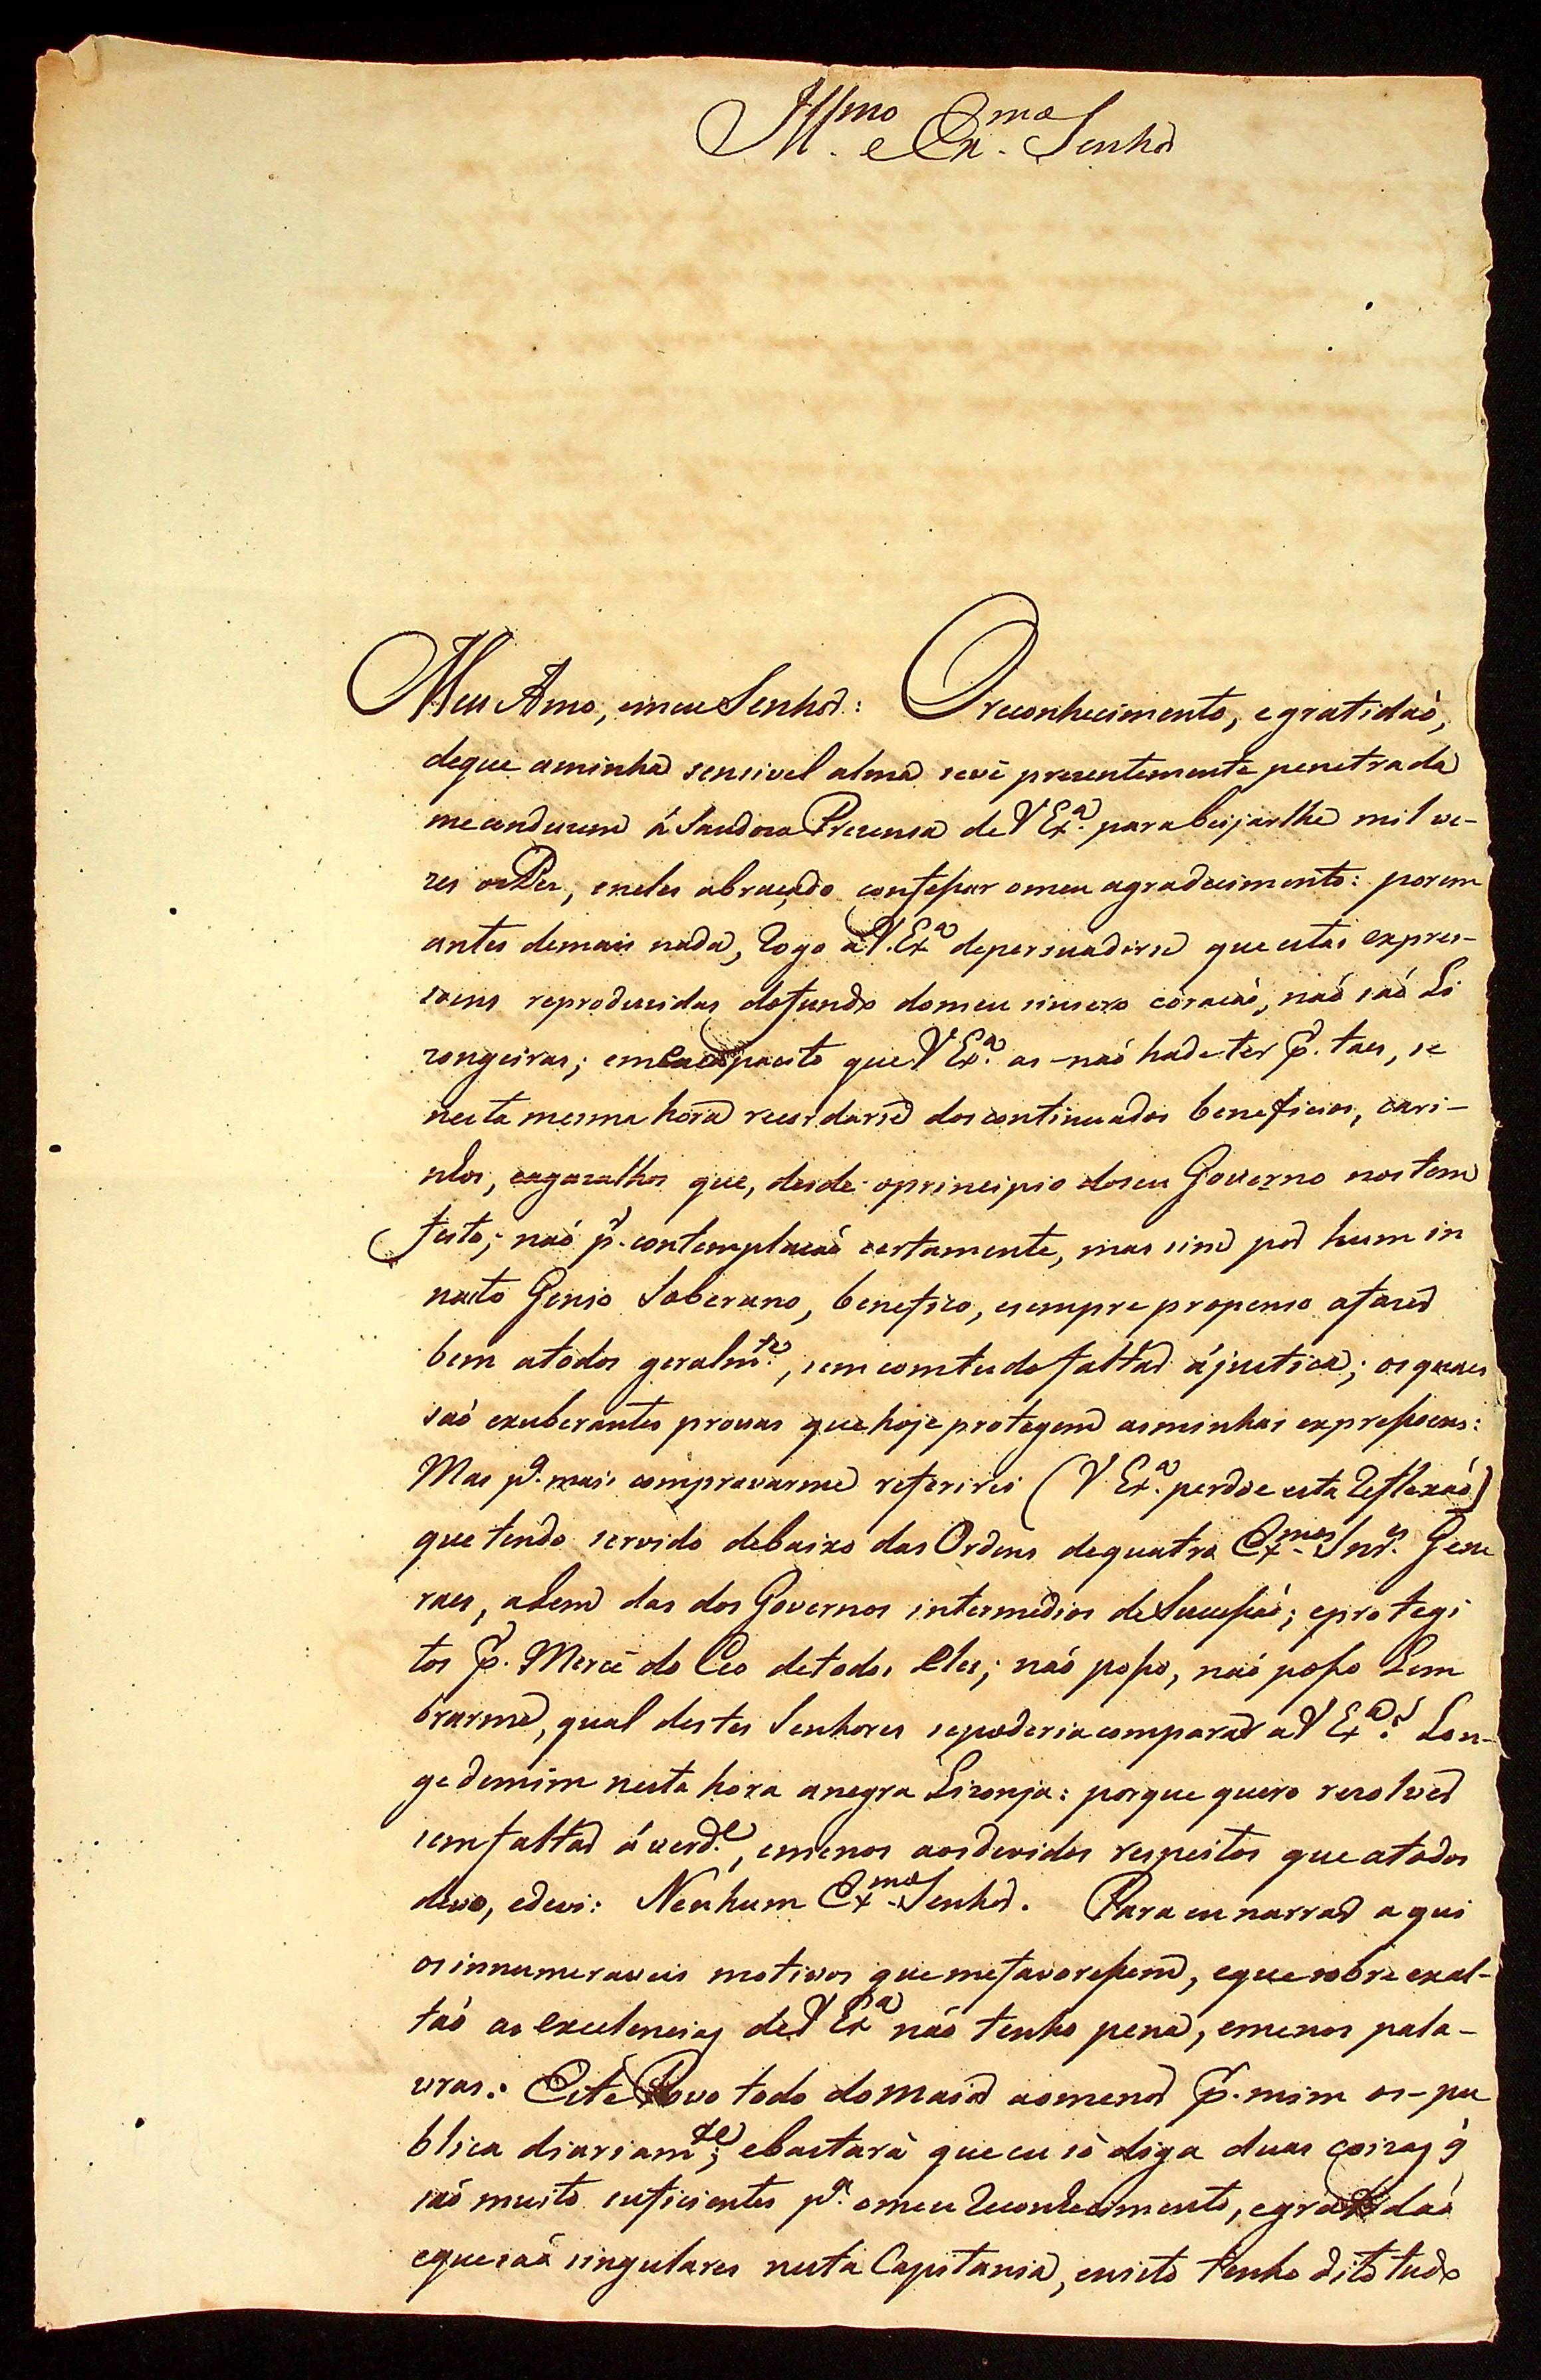 Ill.mo e Ex.mo Senhor
Meu Amo, emeu Senhor: Oreconhecimento, egratidaõ,
deque aminha sensivel alma sevê prezentemente penetrada
meconduzem á Saudoza Prezensa de V Ex.a parabeijarlhe mil ve-
zes osPes, eneles abraçado confeſsar omeu agradecimento: porem
antes demais nada, Rogo aV.Ex.a depersuadirse que estas expres-
soens reproducidas dofundo domeu sincero coraçaõ, naõ saõ Li
zongeiras; em que V Ex.a as-naõ hadeter p.r taes, se
nesta mesma hora recordarse dos continuados beneficios, cari-
nhos, eagazalhos que, desde oprincipio doseu Governo nostem
feito; naõ p.r contemplacaõ certamente, mas sim por hum in
nacto Genio Soberano, benefico, esempre propenso afazer
bem atodos geralm.te, sem comtudo faltar ájustica; osquaes
saõ exuberantes provas que hoje protegem asminhas expreſsoens:
Mas p.a mais comprovarme referirei (V Ex.a perdoe esta Reflexaõ)
que tendo servido debaixo das Ordens dequatro Ex.mos Snr.es Gene
raes, alem das dos Governos intermedios deSuceſsaõ; eprotegi
tos p.r Mercê do Ceo detodos Eles; naõ poſso, naõ poſso Lem
brarme, qual destes Senhores sepoderia comparar aV Ex.a? Lon-
gedemim nesta hora anegra Lizonja: porque quero rezolver
semfaltar áverd.e, emenos aosdevidos respeitos que atodos
devo, edevi: Nenhum Ex.mo Senhor. Para eu narrar aqui
osinnumeraveis motivos que mefavoreſsem, eque sobre exal-
taõ as Excelencias deV Ex.a naõ tenho pena, emenos pala-
vras. Este Povo todo domaior aomenor p.r mim os-pu
blica diariam.te; ebastará que eu só diga duas coizas q̃
saõ muito suficientes p.a omeu Reconhecimento, egratidaõ
equesaõ singulares nesta Capitania, enisto tenho dito tudo